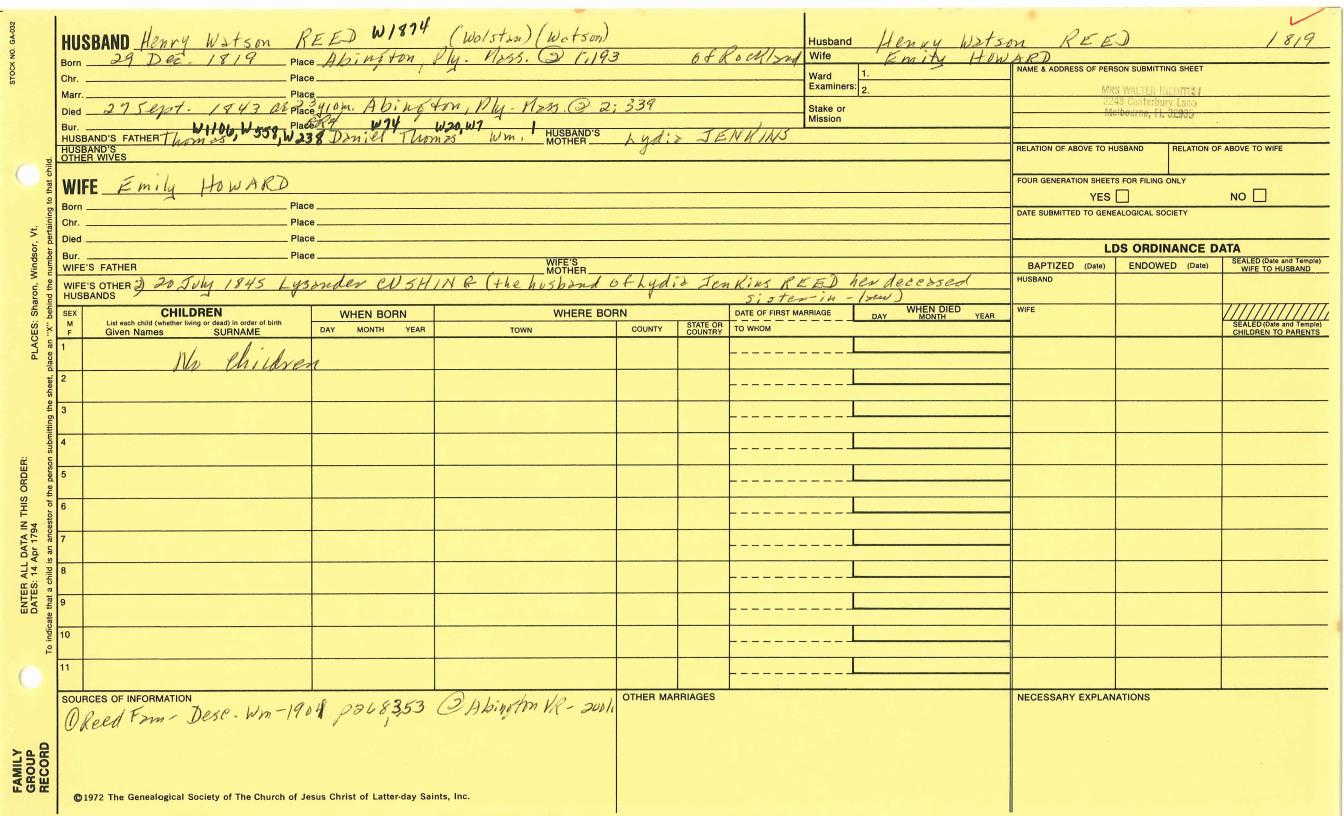 STOCK NO. GA-032
HUSBAND Henry Watson REED W1874 (Wolston) (Watson)
Born 29 Dec. 1819 Place Abington, Ply. Mass. @ 1;193 of Rockland
Chr. Place
Marr. Place
Died 27 Sept. 1843 ae 23y 10m. Place Abington, Ply. Mass. @ 2; 339
Bur. Place
W1106, W558, W238 W74 W20, W7 1
HUSBAND'S FATHER Thomas, Daniel Thomas Wm. HUSBAND'S MOTHER Lydia JENKINS
HUSBAND'S OTHER WIVES
Husband Henry Watson REED 1819
Wife Emily HOWARD
Ward Examiners: 1.
2.
Stake or Mission
NAME & ADDRESS OF PERSON SUBMITTING SHEET
MRS WALTER
2249 Canterbury Lane
Melbourne, Fl. 32935
RELATION OF ABOVE TO HUSBAND RELATION OF ABOVE TO WIFE
FOUR GENERATION SHEETS FOR FILING ONLY
YES NO
DATE SUBMITTED TO GENEALOGICAL SOCIETY
WIFE Emily HOWARD
Born Place
Chr. Place
Died Place
Bur. Place
WIFE'S FATHER WIFE'S MOTHER
WIFE'S OTHER HUSBANDS 2) 20 July 1845 Lysander CUSHING (the husband of Lydia Jenkins REED her deceased
sister-in-law)
LDS ORDINANCE DATA
BAPTIZED (Date) ENDOWED (Date) SEALED (Date and Temple) WIFE TO HUSBAND
HUSBAND
WIFE
SEALED (Date and Temple) CHILDREN TO PARENTS
SEX M F CHILDREN WHEN BORN WHERE BORN DATE OF FIRST MARRIAGE WHEN DIED
List each child (whether living or dead) in order of birth
Given Names SURNAME DAY MONTH YEAR TOWN COUNTY STATE OR COUNTRY TO WHOM DAY MONTH YEAR
1 No Children
2
3
4
5
6
7
8
9
10
11
SOURCES OF INFORMATION
① Reed Fam- Desc. Wm-1901 p268,353 ② Abington VR-
OTHER MARRIAGES
NECESSARY EXPLANATIONS
©1972 The Genealogical Society of The Church of Jesus Christ of Latter-day Saints, Inc.
FAMILY
GROUP
RECORD
ENTER ALL DATA IN THIS ORDER:
DATES: 14 Apr 1794
PLACES: Sharon, Windsor, Vt.
To indicate that a child is an ancestor of the person submitting the sheet, place an "X" behind the number pertaining to that child.